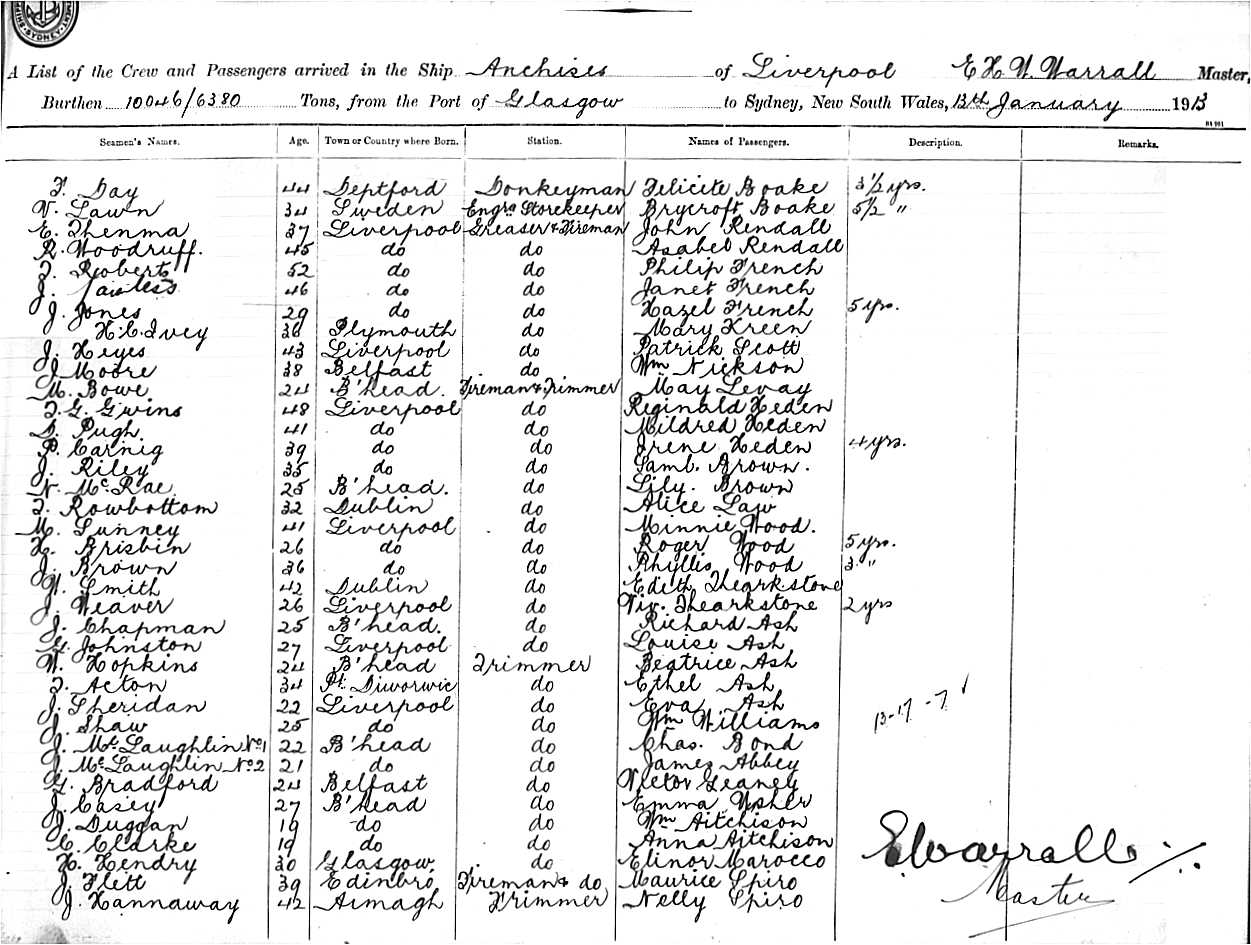 SYDNEY
A List of the Crew and Passengers arrived in the Ship Anchises of Liverpool E H W Warrall Master,
Burthen 10046/6380 Tons, from the Port of Glasgow to Sydney, New South Wales, 13th January 1913
Seamen's Names. Age. Town or Country where Born. Station. Names of Passengers. Description. Remarks.
F. Day 44 Deptford Donkeyman Felicite Boake 3½ yrs.
V. Lawn 34 Sweden Engrs Storekeeper Brycroft Boake 5½ "
E. Thenma 37 Liverpool Greaser & Fireman John Rendall
R. Woodruff. 45 do do Asabel Rendall
T. Roberts 52 do do Philip French
J. Lawless 46 do do Janet French
J. Jones 29 do do Hazel French 5 yrs.
H. C. Ivey 36 Plymouth do Mary Kreen
J. Heyes 43 Liverpool do Patrick Scott
J. Moore 38 Belfast do Wm Nickson
M. Bowe 24 B'head. Fireman & Trimmer May Levay
T. G. Gwins 48 Liverpool do Reginald Heden
D. Pugh. 41 do do Mildred Heden
P. Carnig 39 do do Irene Heden 4 yrs.
J. Riley 35 do do Saml. Brown.
N. McRae 25 B'head. do Lily. Brown
T. Rowbottom 32 Dublin do Alice Law
M. Sunney 41 Liverpool do Minnie Wood.
H. Brisbin 26 do do Roger Wood 5 yrs.
J. Brown 36 do do Phyllis Wood 3 "
W. Smith 42 Dublin do Edith Thearkstone
J. Weaver 26 Liverpool do Viv. Thearkstone 2 yrs
J. Chapman 25 B'head. do Richard Ash
G. Johnston 27 Liverpool do Louise Ash
W. Hopkins 24 B'head Trimmer Beatrice Ash
T. Acton 34 Pt. Diworwic do Ethel Ash
J. Sheridan 22 Liverpool do Eva. Ash
J. Shaw 25 do do Wm Williams 13-17-7
J. McLaughlin No1 22 B'head do Chas. Bond
J. McLaughlin No2 21 do do James Abbey
G. Bradford 24 Belfast do Victor Geaney
J. Casey 27 B'head do Emma Usher
J. Duggan 19 do do Wm Aitchison
C. Clarke 19 do do Anna Aitchison
H. Hendry 30 Glasgow. do Elinor Marocco
J. Flett 39 Edinbro Fireman & do Maurice Spiro
J. Hannaway 42 Armagh Trimmer Nelly Spiro
EWarrall
Master